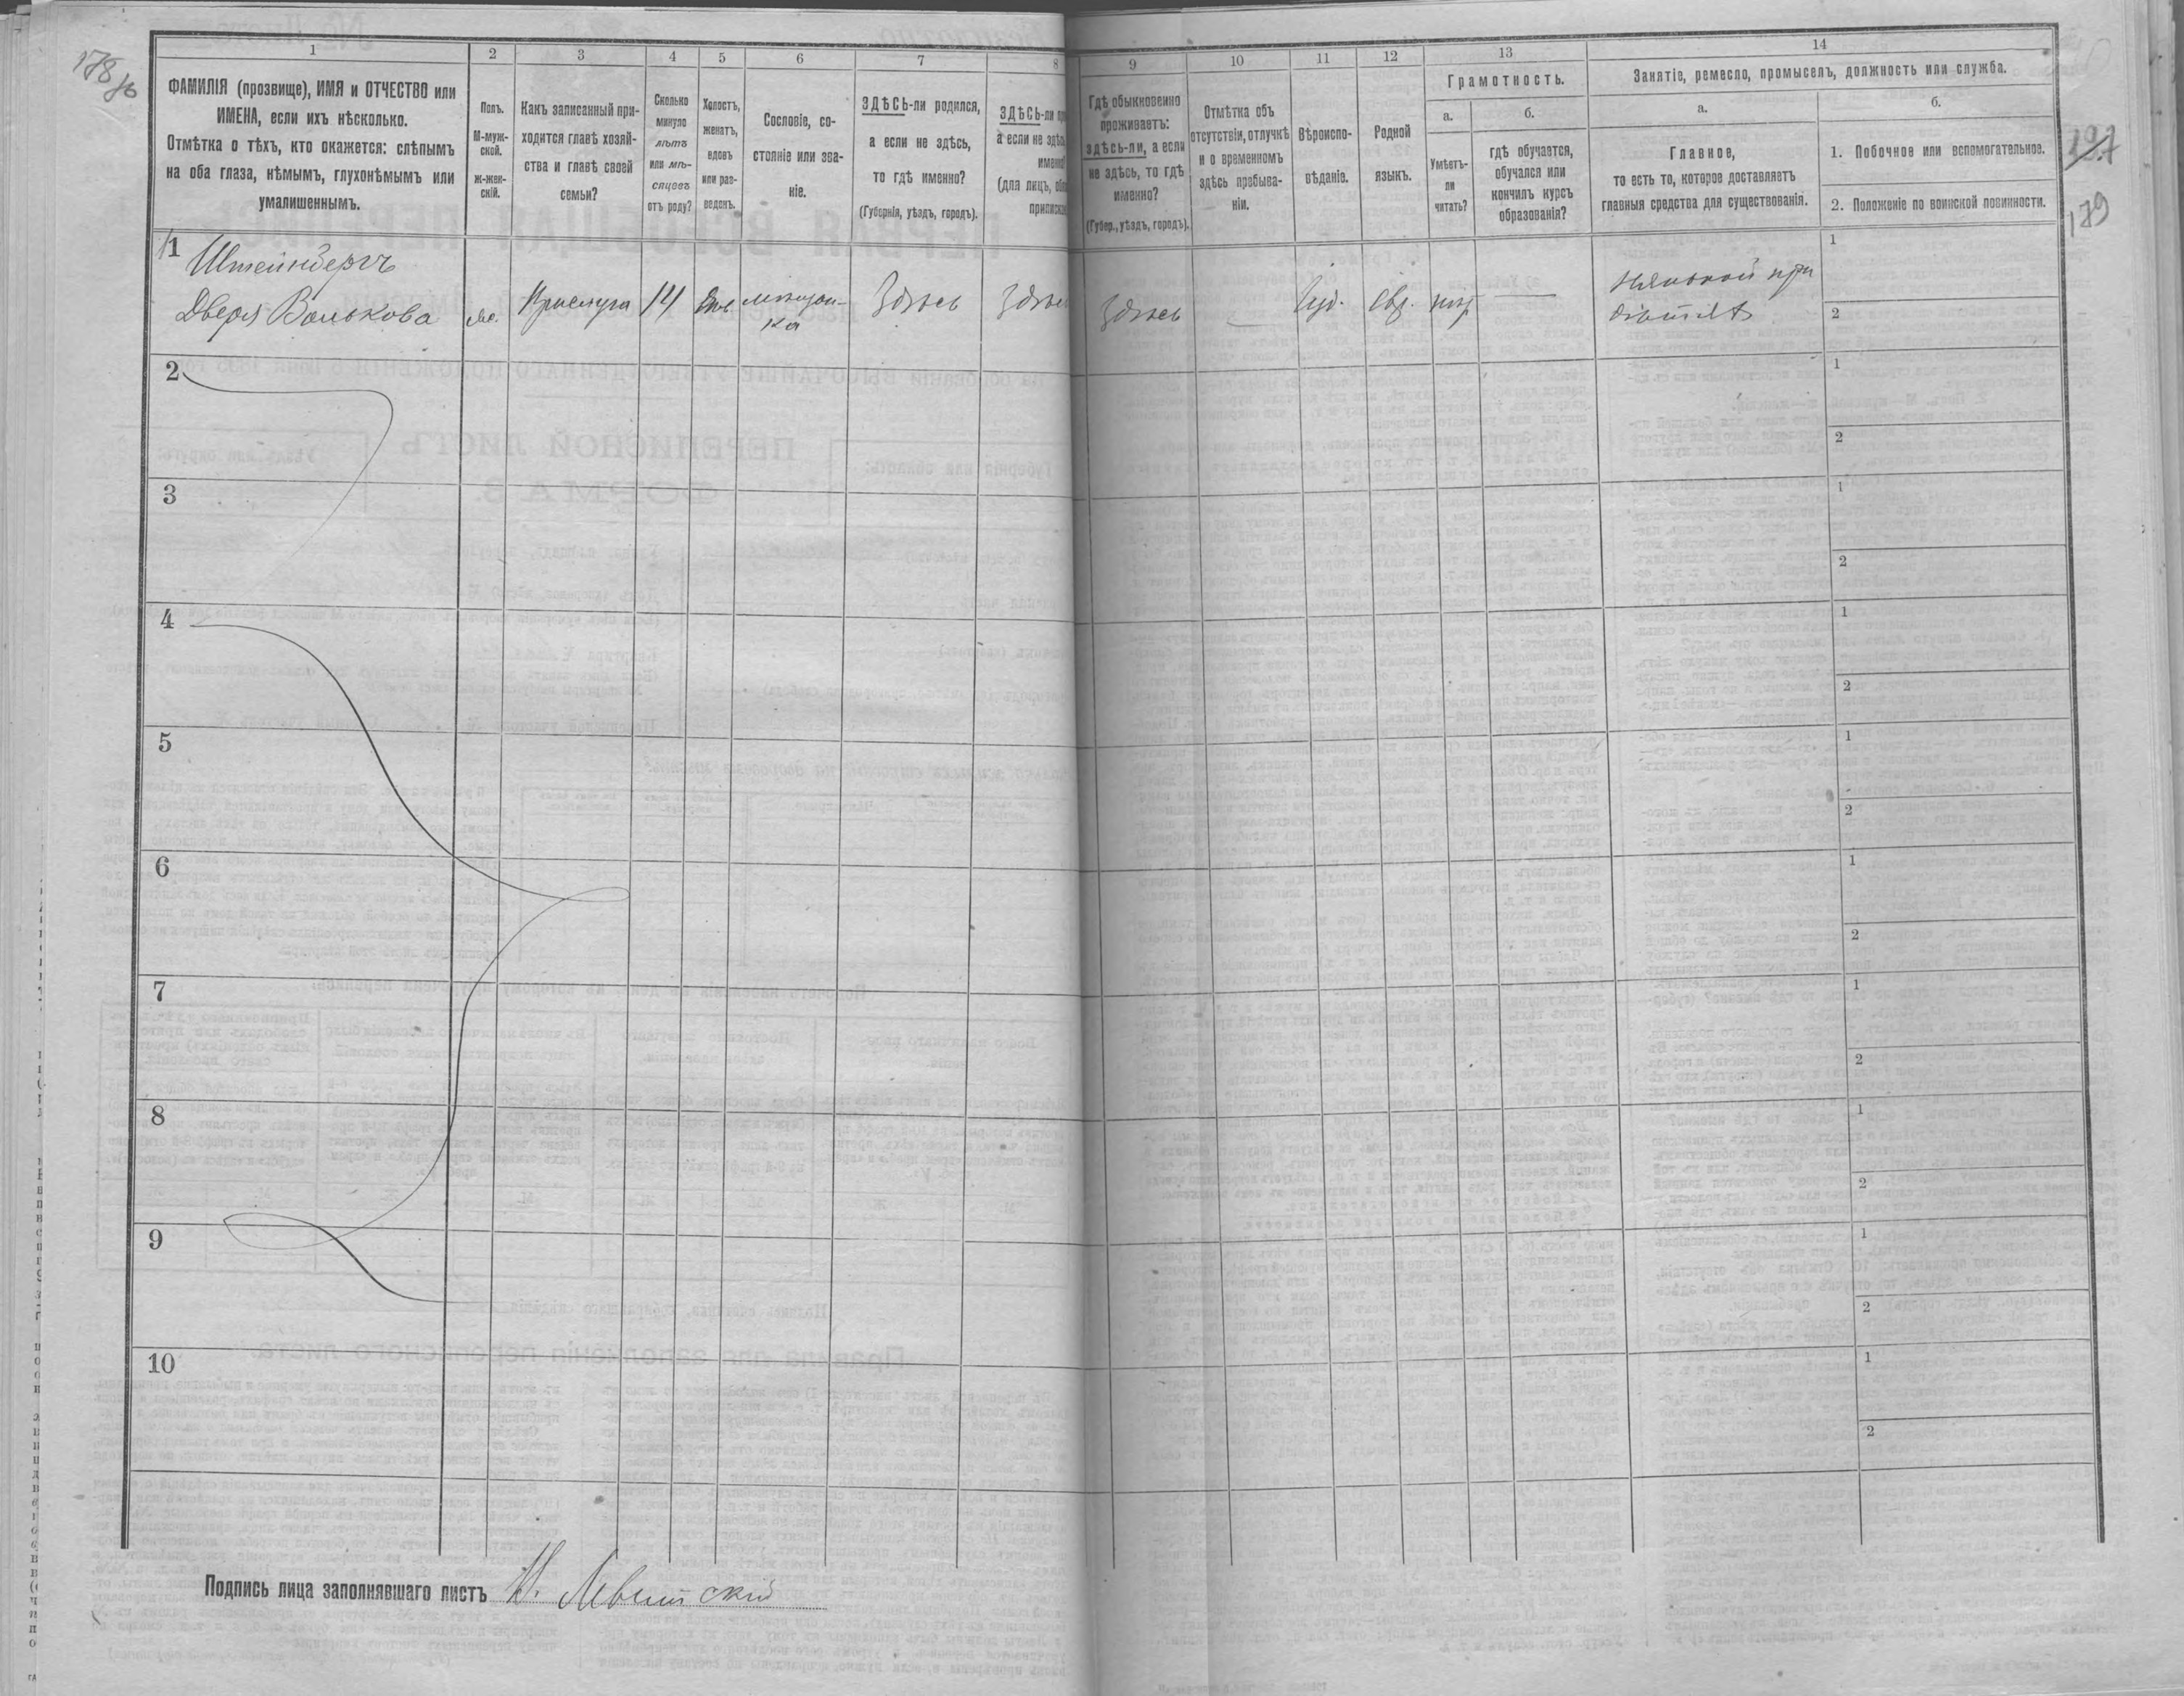 178 об
1
ФАМИЛІЯ (прозвище), ИМЯ и ОТЧЕСТВО или
ИМЕНА, если ихъ нѣсколько.
Отмѣтка о тѣхъ, кто окажется: слѣпымъ
на оба глаза, нѣмымъ, глухонѣмымъ или
умалишеннымъ.
2
Полъ.
М-муж-
ской.
ж-жен-
скій.
3
Какъ записанный при-
ходится главѣ хозяй-
ства и главѣ своей
семьи?
4
Сколько
минуло
лѣтъ
или мѣ-
сяцевъ
отъ роду?
5
Холостъ,
женатъ,
вдовъ
или раз-
веденъ.
6
Сословіе, со-
стояніе или зва-
ніе.
7
ЗДѢСЬ-ли родился,
а если не здѣсь,
то гдѣ именно?
(Губернія, уѣздъ, городъ).
8
ЗДѢСЬ-ли
а если не
(для лицъ,
9
Гдѣ обыкновенно
проживаетъ:
здѣсь-ли, а если
не здѣсь, то гдѣ
именно?
(Губер., уѣздъ, городъ).
10
Отмѣтка объ
отсутствіи, отлучкѣ
и о временномъ
здѣсь пребыва-
ніи.
11
Вѣроиспо-
вѣданіе.
12
Родной
языкъ.
13
Грамотность.
а.
Умѣетъ-
ли
читать?
б.
гдѣ обучается,
обучался или
кончилъ курсъ
образованія?
14
Занятіе, ремесло, промыселъ, должность или служба.
а.
Главное,
то есть то, которое доставляетъ
главныя средства для существованія.
б.
1. Побочное или вспомогательное.
2. Положеніе по воинской повинности.
197
179
1
Штейнбергъ
Двера Волькова
ж.
Прислуга
14
мѣщан-
ка
Здѣсь
Здѣсь
Здѣсь
—
Іуд.
Евр.
—
нянькой при
дѣтяхъ
1
2
2
1
2
3
1
2
4
1
2
5
1
2
6
1
2
7
1
2
8
1
2
9
1
2
10
1
2
Подпись лица заполнявшаго листъ Н. Левитскій